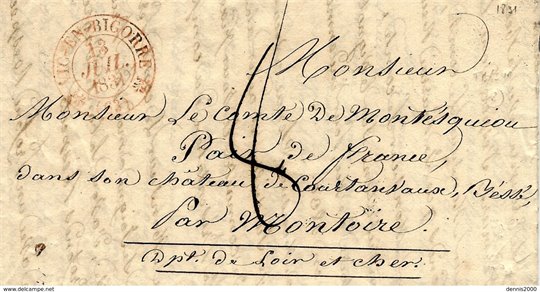 1831
VIC-EN-BIGORRE
13
JUIL.
1831
Monsieur
Monsieur Le Comte De Montesquiou
Pair de france,
dans son château de Courtanvaux, Béssé,
Par Montoire.
Dpt. de Loir et cher.
delcampe.net
dennis2000